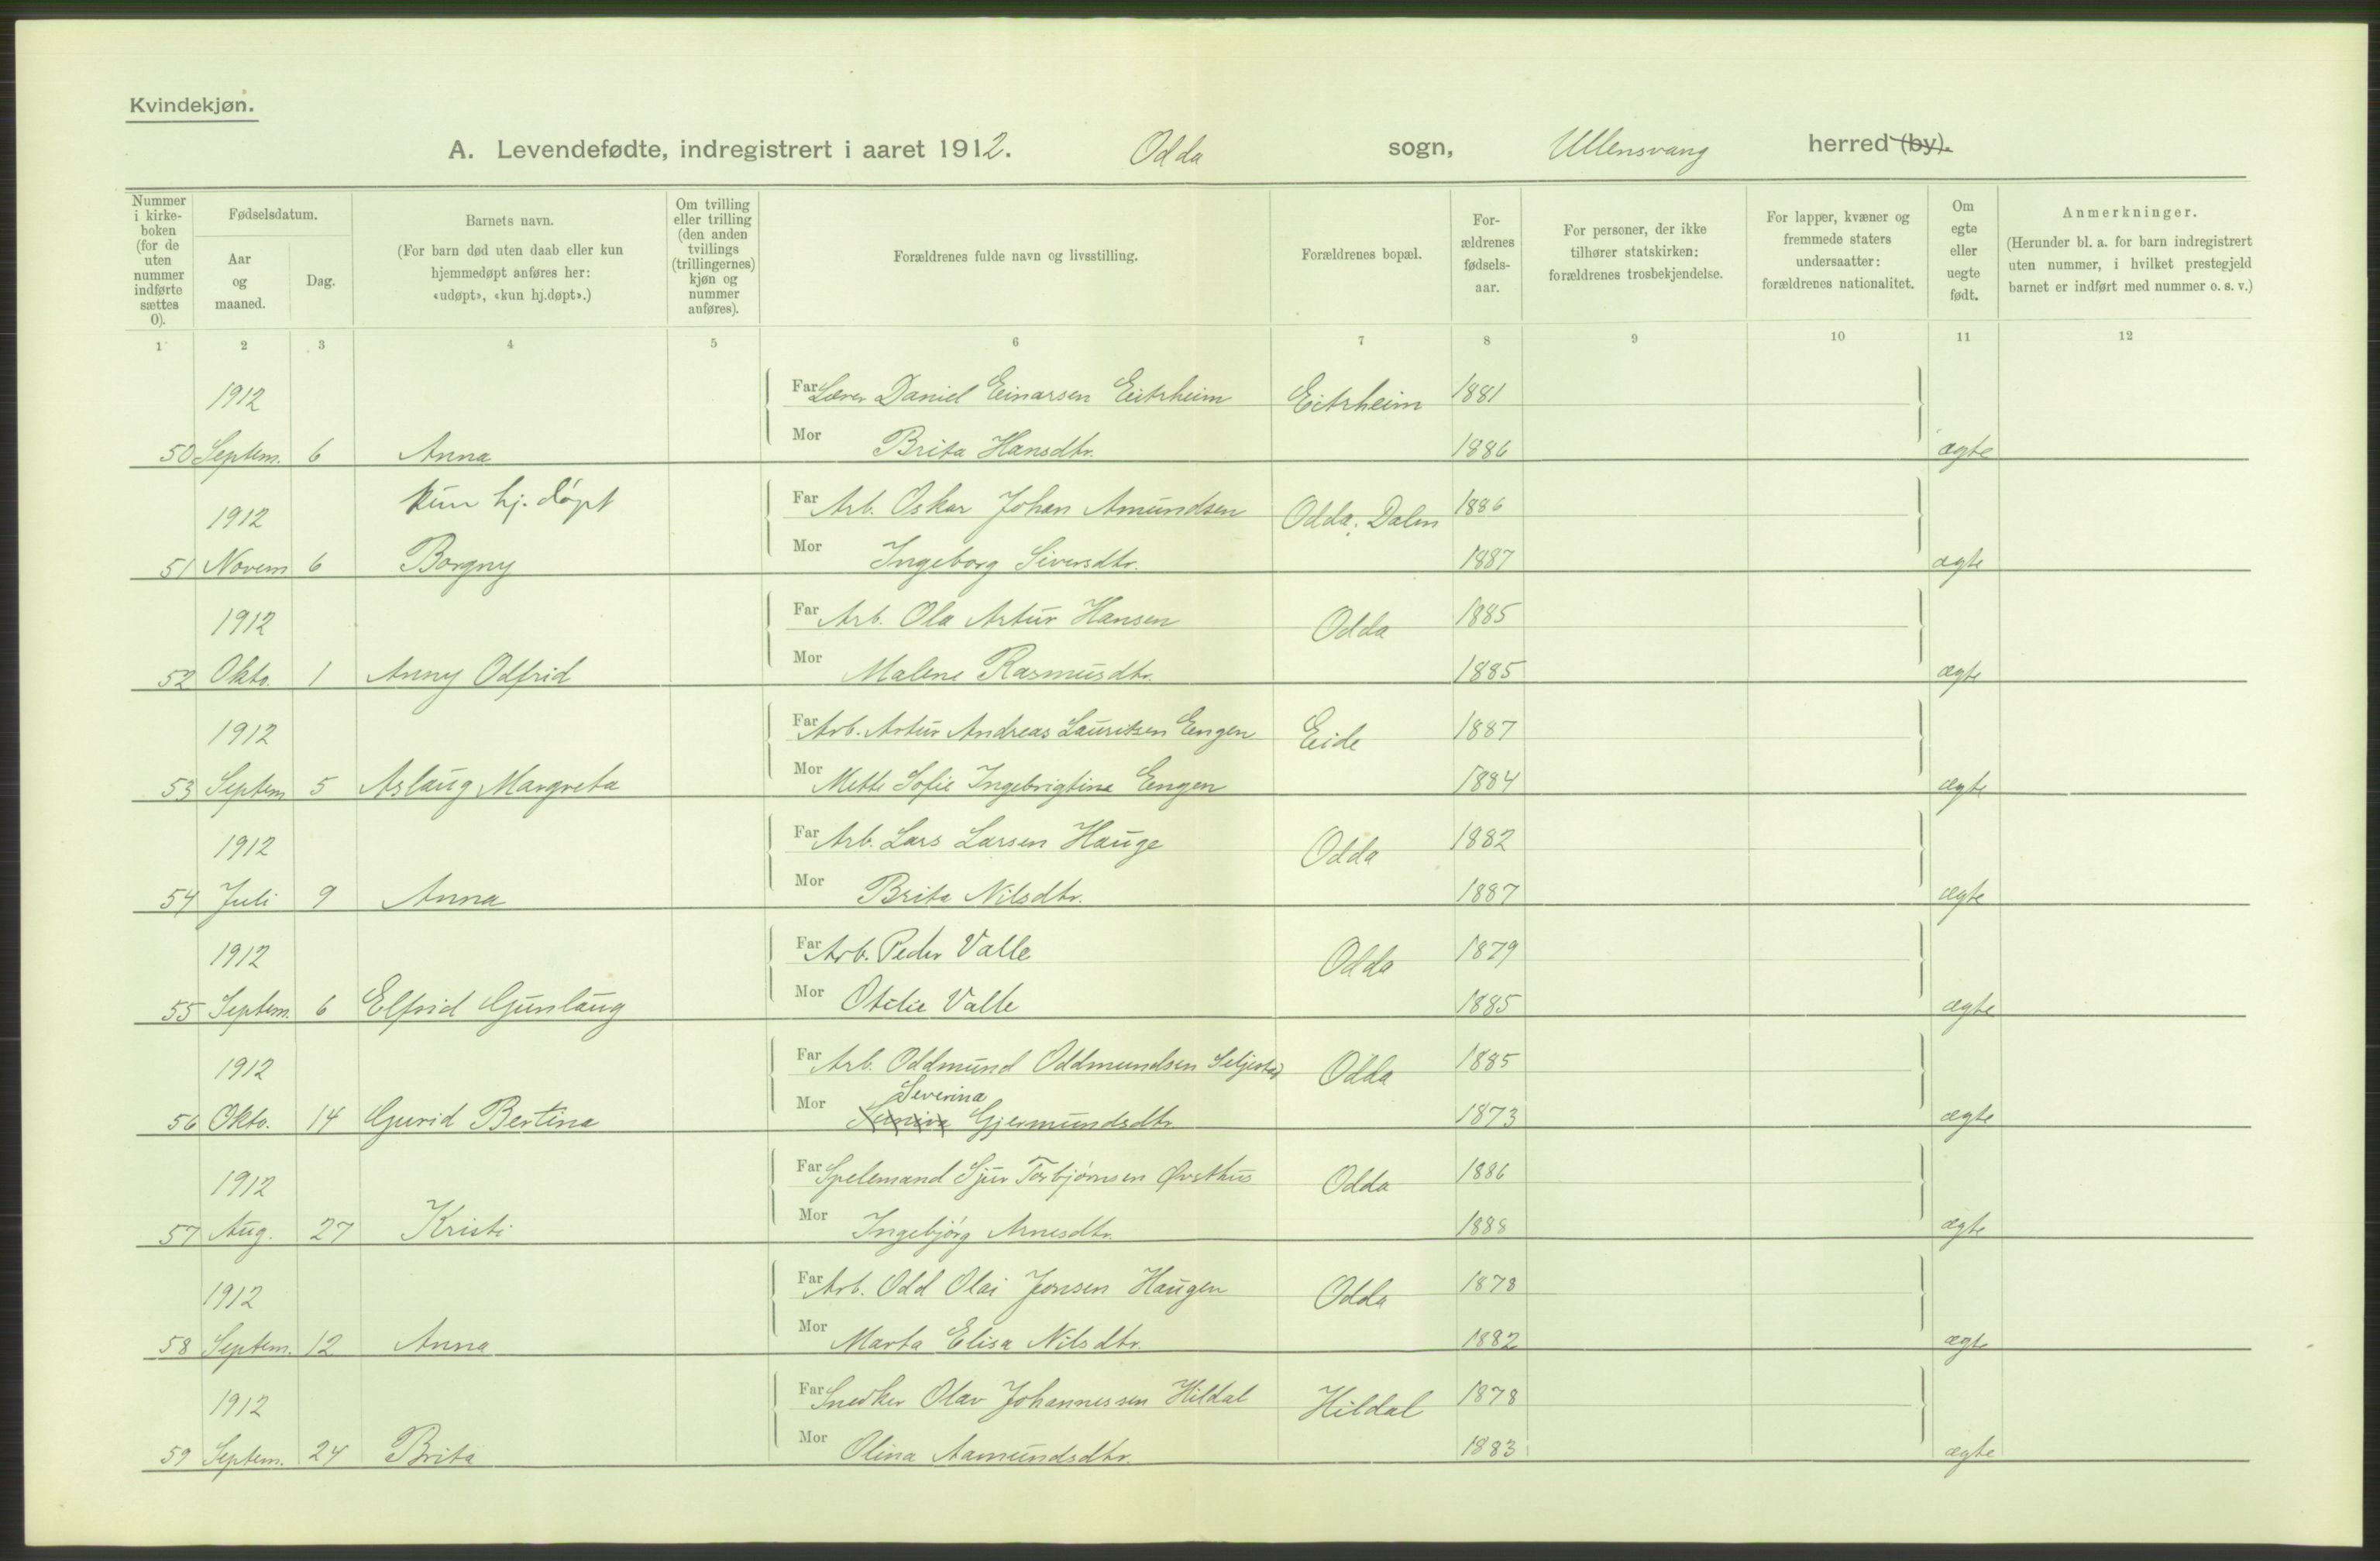 Kvindekjøn.
A. Levendefødte, indregistrert i aaret 1912. Odda sogn, Ullensvang herred (by).
Nummer i kirke-boken (for de uten nummer indførte sættes 0).
Fødselsdatum.
Aar og maaned.
Dag.
Barnets navn.
(For barn død uten daab eller kun hjemmedøpt anføres her: «udøpt», «kun hj.døpt».)
Om tvilling eller trilling (den anden tvillings (trillingernes) kjøn og nummer anføres).
Forældrenes fulde navn og livsstilling.
Forældrenes bopæl.
For-ældrenes fødsels-aar.
For personer, der ikke tilhører statskirken: forældrenes trosbekjendelse.
For lapper, kvæner og fremmede staters undersaatter: forældrenes nationalitet.
Om egte eller uegte født.
Anmerkninger.
(Herunder bl. a. for barn indregistrert uten nummer, i hvilket prestegjeld barnet er indført med nummer o. s. v.)
1 2 3 4 5 6 7 8 9 10 11 12
1912 Far Daniel Einarsen Eitrheim Eitrheim 1881
50 Septem. 6 Anna Mor Brita Hansdtr. 1886 ægte
1912 kun hj. døpt Far Arb. Oskar Johan Amundsen Odda, Dalen 1886
51 Novem 6 Borgny Mor Ingeborg Siversdtr. 1887 ægte
1912 Far Arb. Ola Artur Hansen Odda 1885
52 Okto. 1 Anny Odfrid Mor Malene Rasmusdtr. 1885 ægte
1912 Far Arb. Artur Andreas Lauritsen Engen Eide 1887
53 Septem 5 Aslaug Margreta Mor Mette Sofie Ingebrigtine Engen 1884 ægte
1912 Far Arb. Lars Larsen Hauge Odda 1882
54 Juli 9 Anna Mor Brita Nilsdtr. 1887 ægte
1912 Far Arb. Peder Valle Odda 1879
55 Septem. 6 Elfrid Gunlaug Mor Otilie Valle 1885 ægte
1912 Far Arb. Oddmund Oddmundsen Seljestad Odda 1885
56 Okto. 14 Gurid Bertina Mor Severina Gjermundsdtr. 1873 ægte
1912 Far Spelemand Sjur Torbjørnsen Øvsthus Odda 1886
57 Aug. 27 Kristi Mor Ingebjørg Arnesdtr. 1888 ægte
1912 Far Arb. Odd Olai Jensen Haugen Odda 1878
58 Septem. 12 Anna Mor Marta Elisa Nilsdtr. 1882 ægte
1912 Far Snedker Olav Johannessen Hildal Hildal 1878
59 Septem. 24 Brita Mor Olina Aamundsdtr. 1883 ægte